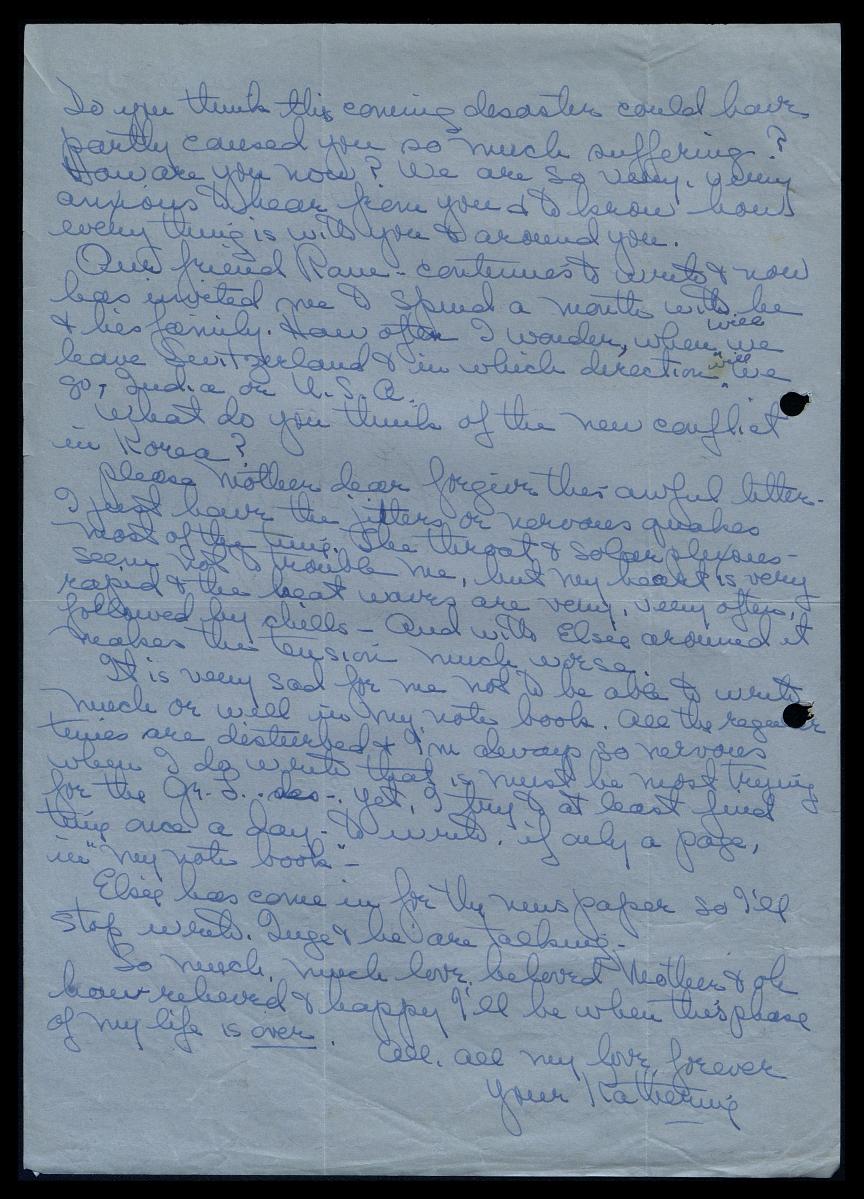 Do you think this coming desaster could have
partly caused you so much suffering?
How are you now? We are so very, very
anxious to hear from you & to know how
every thing is with you & around you.
Our friend Ram - continues to write & now
has invited me to spend a month with he
& his family. How often I wonder, when will we
leave Switzerland & in which direction will we
go, India or U.S.A.
What do you think of the new conflict
in Korea?
Please Mother dear forgive this awful letter -
I just have the jitters or nervous quakes
most of the time. The throat & solar plexous -
seem not to trouble me, but my heart is very
rapid & the heat waves are very, very often,
followed by chills - And with Elsie around it
makes the tension much worse.
It is very sad for me not to be able to write
much or well in my note book. All the regular
times are disturbed & I'm always so nervous
when I do write that is must be most trying
for the Gr. yet, I try to at least find
time once a day - to write, if only a page,
in "my note book" -
Elsie has come in for the news paper so I'll
stop write. Inge & he are talking -
So much, much love, beloved Mother & oh
how relieved & happy I'll be when this phase
of my life is over.
All, all my love, forever
your Katherine